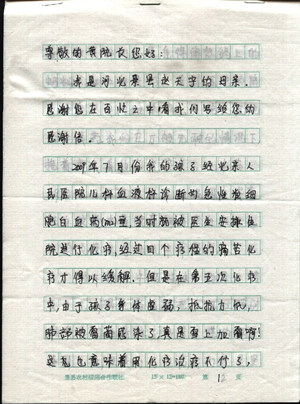 尊敬的黄院长您好:
我是河北景县边天宇的母亲.
感谢您在百忙之中看我们写给您的
感谢信。
2009年7月份我的孩子经北京人
民医院儿科血液科诊断为急性髓细
胞白血病(m2)当时就被医生安排住
院进行化疗,经过四个疗程的痛苦化
疗才得以缓解.但是在第五次化疗
中,由于孩子身体虚弱,抵抗力低,
肺部被霉菌感染了真是雪上加霜啊!
这就也意味着用化疗治疗不行了,
15×12=180 第 1 页